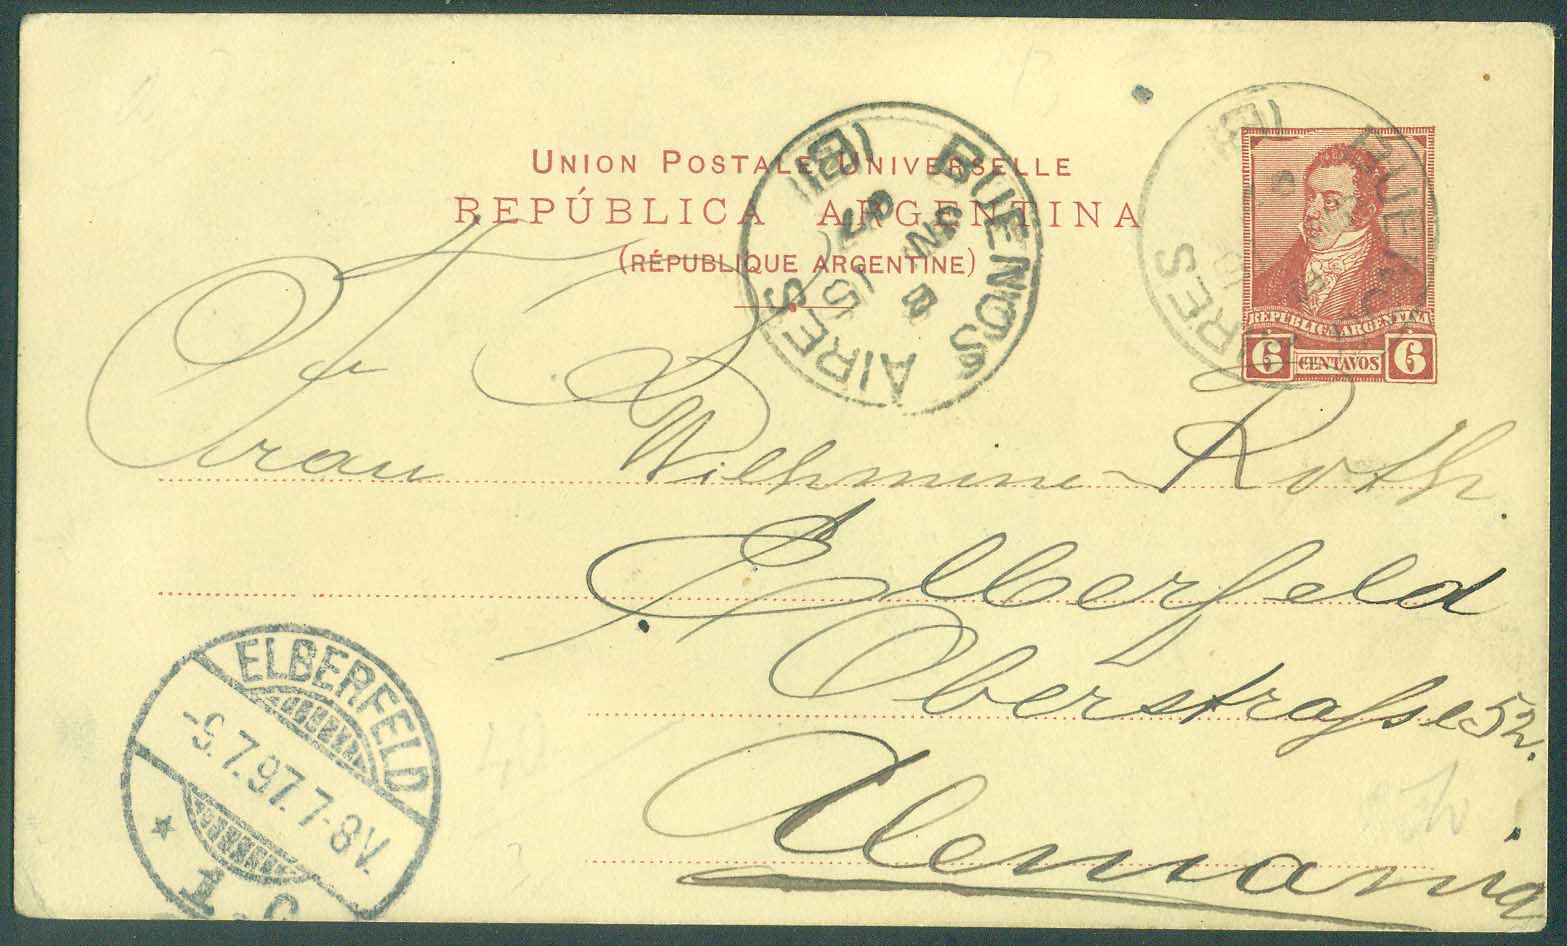 UNION POSTALE UNIVERSELLE
REPÚBLICA ARGENTINA
(RÉPUBLIQUE ARGENTINE)
BUENOS AIRES
15
97
(B)
BUENOS AIRES
(B)
REPÚBLICA ARGENTINA
6 CENTAVOS 6
Frau Wilhmine Roth.
Elberfeld
Oberstraſse 52.
Alemania
ELBERFELD
-9.7.97.7-8V.
* 1